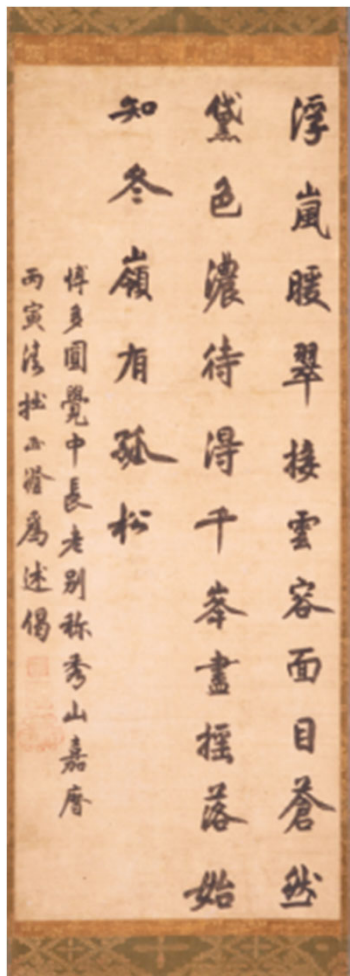 浮嵐暖翠接雲容面目蒼然
黛色濃待得千峯盡搖落始
知冬嶺有孤松
博多圓覺中長老別称秀山嘉暦
丙寅清拙正澄爲述偈